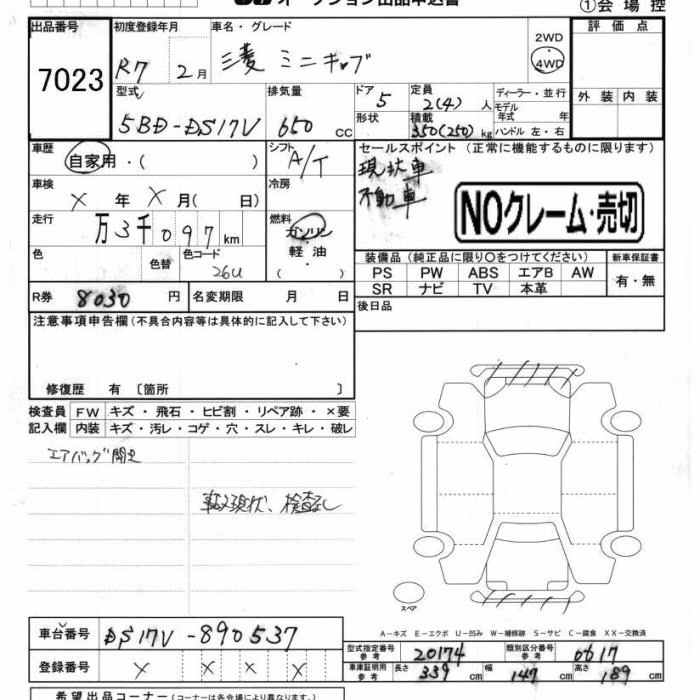 オークション出品申込書
①会場控
出品番号 初度登録年月 車名・グレード 2WD 4WD 評価点
7023 R7 2月 三菱 ミニキャブ
外装 内装
型式 5BD-DS17V
排気量 650 cc
ドア 5 定員 2(4) 人 ディーラー・並行
モデル年式 年
形状 積載 350(250) kg ハンドル 左・右
車歴 自家用・( )
シフト A/T
セールスポイント (正常に機能するものに限ります)
現状車
不動車
NOクレーム・売切
車検 × 年 × 月( 日) 冷房
走行 万3千097 km
燃料 ガソリン・軽油・( )
色 色替 色コード 26U
装備品 (純正品に限り○をつけてください) 新車保証書
PS PW ABS エアB AW 有・無
SR ナビ TV 本革
R券 8030 円 名変期限 月 日
後日品
注意事項申告欄(不具合内容等は具体的に記入して下さい)
修復歴 有 〔箇所 〕
検査員 FW キズ・飛石・ヒビ割・リペア跡・×要
記入欄 内装 キズ・汚レ・コゲ・穴・スレ・キレ・破レ
エアバッグ開定
現状、検査なし
スペア
A-キズ E-エクボ U-凹み W-補修跡 S-サビ C-腐食 XX-交換済
車台番号 DS17V-890537
登録番号 × × × ×
型式指定番号 参考 20174 類別区分番号 参考 0617
車庫証明用 参考 長さ 339 cm 幅 147 cm 高さ 189 cm
希望出品コーナー(コーナーは各会場により異なります。)